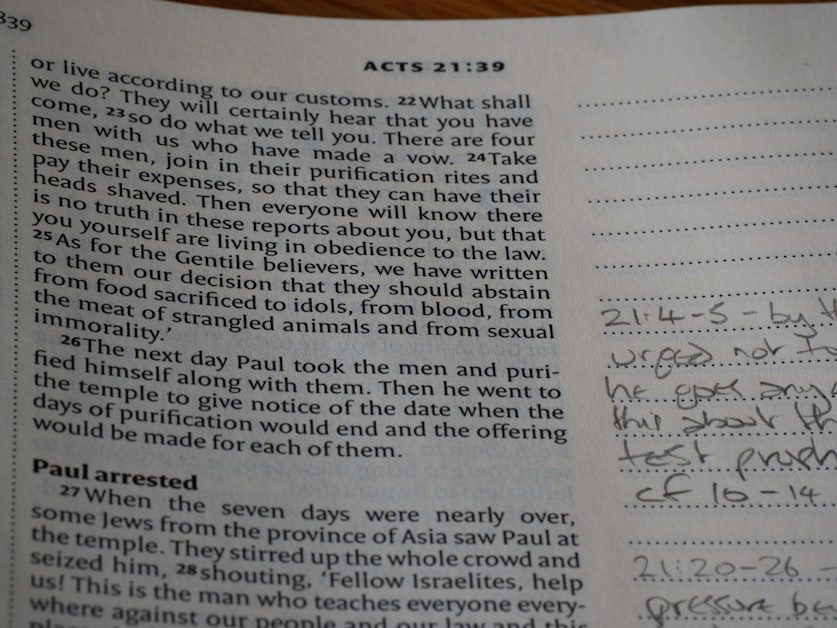 839
ACTS 21:39
or live according to our customs. 22What shall
we do? They will certainly hear that you have
come, 23so do what we tell you. There are four
men with us who have made a vow. 24Take
these men, join in their purification rites and
pay their expenses, so that they can have their
heads shaved. Then everyone will know there
is no truth in these reports about you, but that
you yourself are living in obedience to the law.
25As for the Gentile believers, we have written
to them our decision that they should abstain
from food sacrificed to idols, from blood, from
the meat of strangled animals and from sexual
immorality.’
26The next day Paul took the men and puri-
fied himself along with them. Then he went to
the temple to give notice of the date when the
days of purification would end and the offering
would be made for each of them.
Paul arrested
27When the seven days were nearly over,
some Jews from the province of Asia saw Paul at
the temple. They stirred up the whole crowd and
seized him, 28shouting, ‘Fellow Israelites, help
us! This is the man who teaches everyone every-
where against our people and our law and this
21:4-5 - by
urged not
he goes
this about
test
cf 10-14.
21:20-26 -
pressure